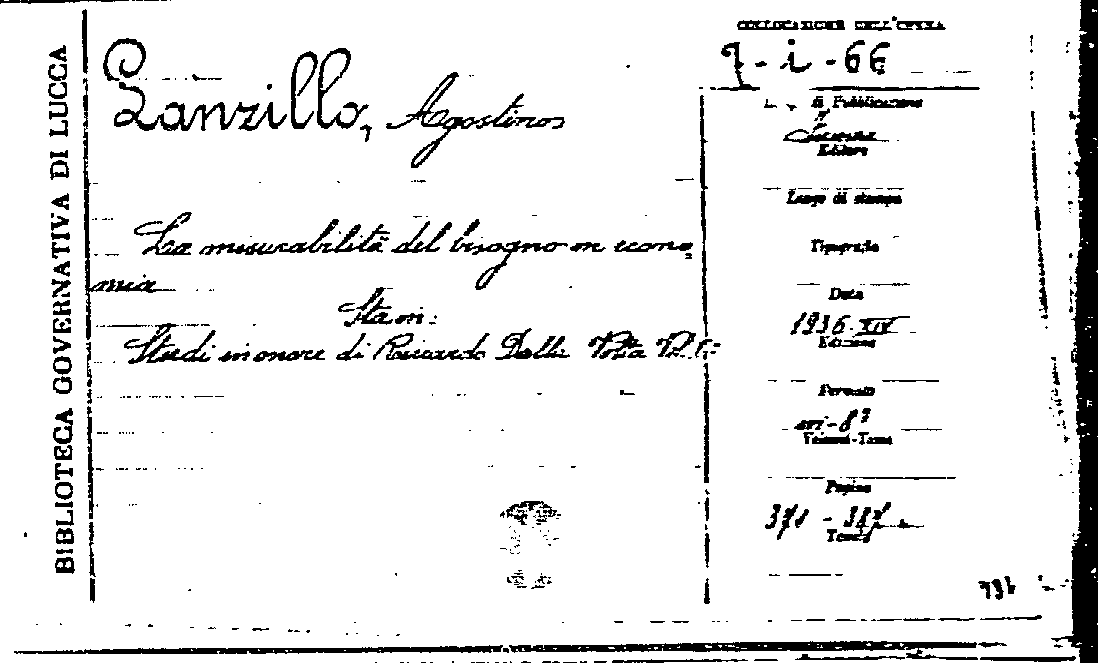 BIBLIOTECA GOVERNATIVA DI LUCCA
Lanzillo, Agostino
La misurabilità del bisogno in econo-
mia
Sta in:
Studi in onore di Riccardo Dalla Volta Vol.
COLLOCAZIONE DELL'OPERA
7-i-66
di Pubblicazione
Firenze
Editore
Luogo di stampa
Tipografia
Data
1936-XIV
Edizione
Formato
in-8°
Volumi-Tomo
Pagine
371 - 387
Tavole